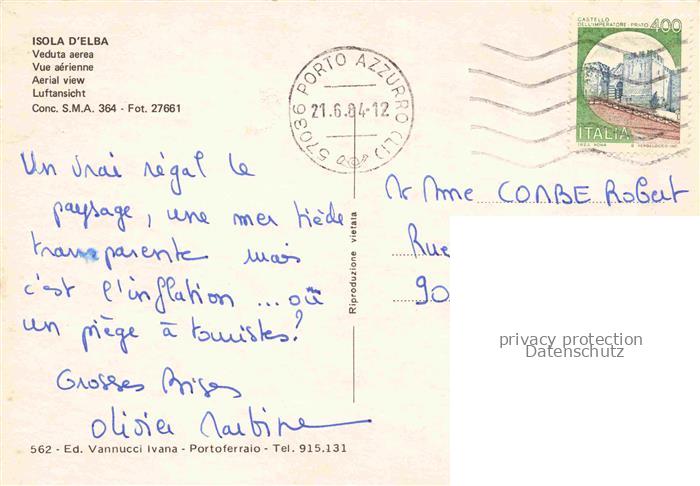 ISOLA D'ELBA
Veduta aerea
Vue aérienne
Aerial view
Luftansicht
Conc. S.M.A. 364 - Fot. 27661
57036 PORTO AZZURRO (LI)
21.6.84-12
CASTELLO
DELL'IMPERATORE - PRATO
400
ITALIA
Un vrai régal le
paysage, une mer tiède
transparente mais
c'est l'inflation ... où
un piège à touristes?
Grosses Bises
Olivier Martine
Riproduzione vietata
Mr Mme COMBE Robert
Rue
90
privacy protection
Datenschutz
562 - Ed. Vannucci Ivana - Portoferraio - Tel. 915.131